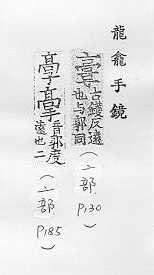 龍龕手鏡
古鑊反遠
也与郭同
(亠部 P130)
音郭度
遠也二
(亠部 P185)